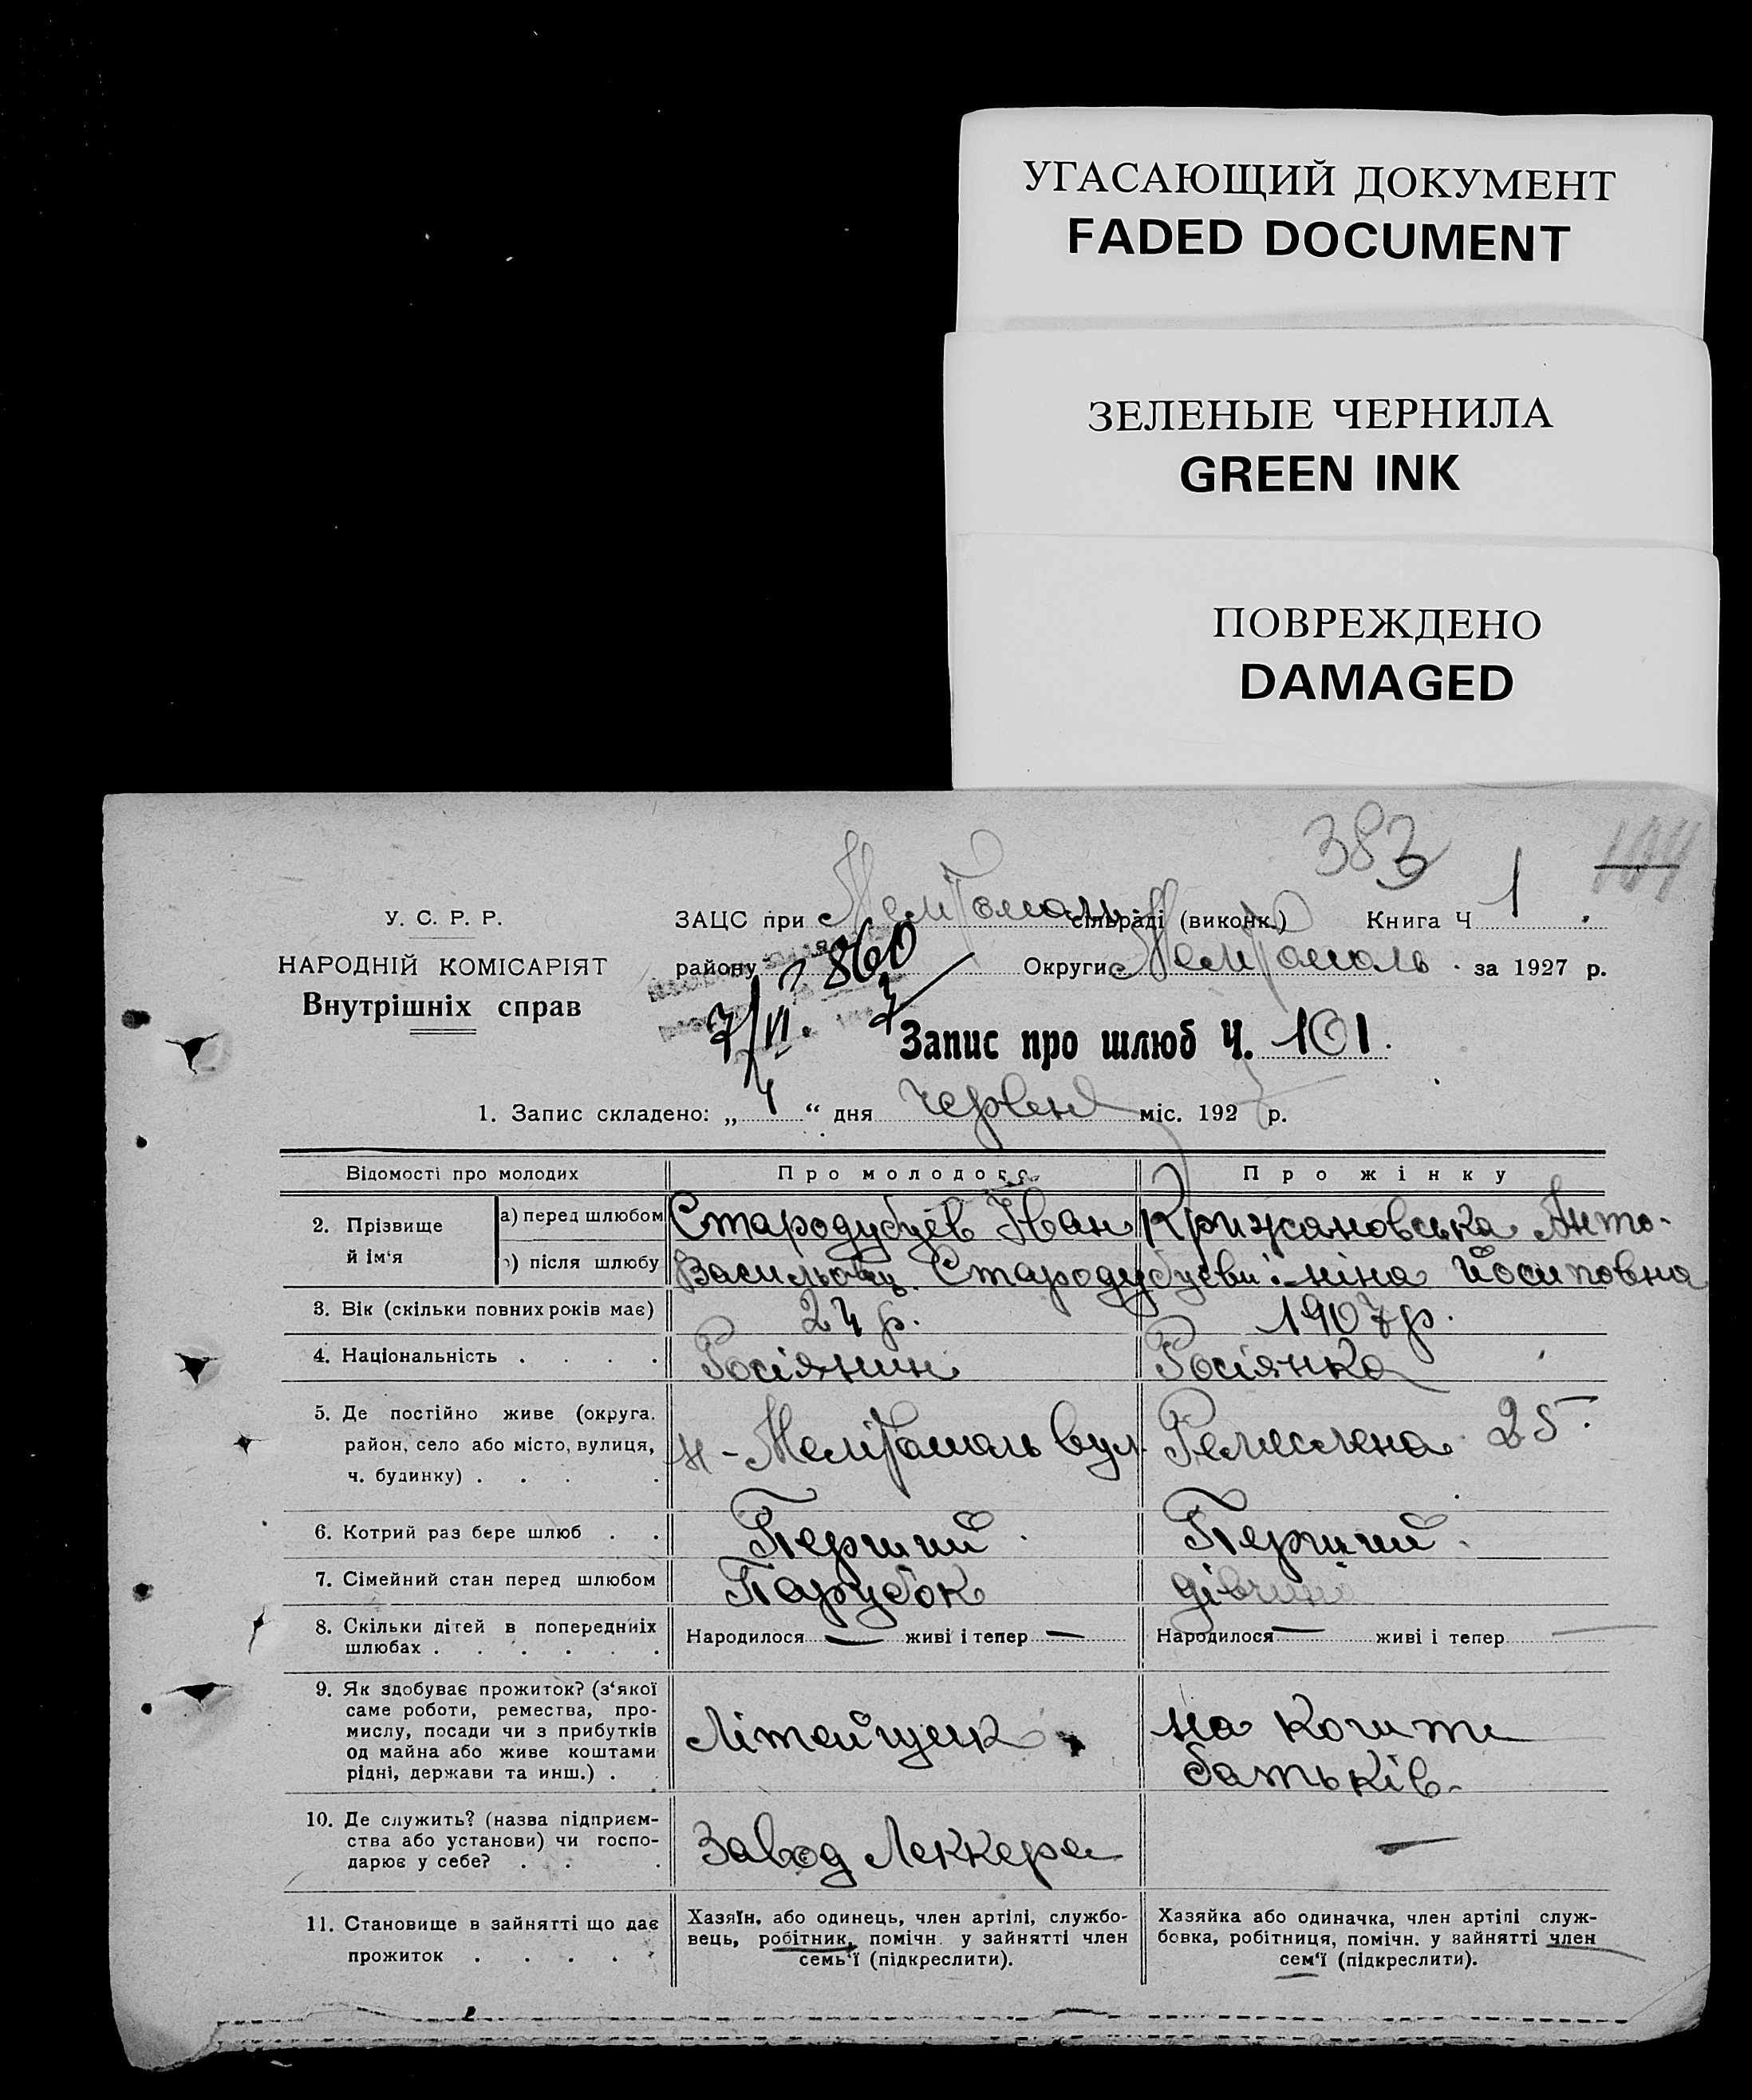 УГАСАЮЩИЙ ДОКУМЕНТ
FADED DOCUMENT
ЗЕЛЕНЫЕ ЧЕРНИЛА
GREEN INK
ПОВРЕЖДЕНО
DAMAGED
383
У. С. Р. Р.
НАРОДНІЙ КОМІСАРІЯТ
Внутрішніх справ
ЗАЦС при сільраді (виконк.) Книга Ч 1
району 860 Округи Мелітополь за 1927 р.
7/VI
Запис про шлюб Ч. 101.
1. Запис складено: „ 4 “ дня червня міс. 1927 р.
Відомості про молодих Про молодого Про жінку
2. Прізвище й ім'я
а) перед шлюбом Стародубцев Іван Крижановська Анто-
) після шлюбу Васильович Стародубцеви ніна Йосиповна
3. Вік (скільки повних років має) 24 р. 1907 р.
4. Національність . . . . Росіянин Росіянка
5. Де постійно живе (округа.
район, село або місто, вулиця,
ч. будинку) . . . . м-Мелітополь вул. Ремеслена 25.
6. Котрий раз бере шлюб . . Перший. Перший.
7. Сімейний стан перед шлюбом Парубок дівчина
8. Скільки дітей в попередніх
шлюбах . . . . . . Народилося — живі і тепер — Народилося — живі і тепер —
9. Як здобуває прожиток? (з'якої
саме роботи, ремества, про-
мислу, посади чи з прибутків
од майна або живе коштами
рідні, держави та инш.) . Літейщик на кошти
батьків
10. Де служить? (назва підприєм-
ства або установи) чи госпо-
дарює у себе? . . . Завод Леккера —
11. Становище в зайнятті що дає
прожиток . . . . .
Хазяїн, або одинець, член артілі, службо-
вець, робітник, помічн. у зайнятті член
семь'ї (підкреслити).
Хазяйка або одиначка, член артілі служ-
бовка, робітниця, помічн. у зайнятті член
сем'ї (підкреслити).